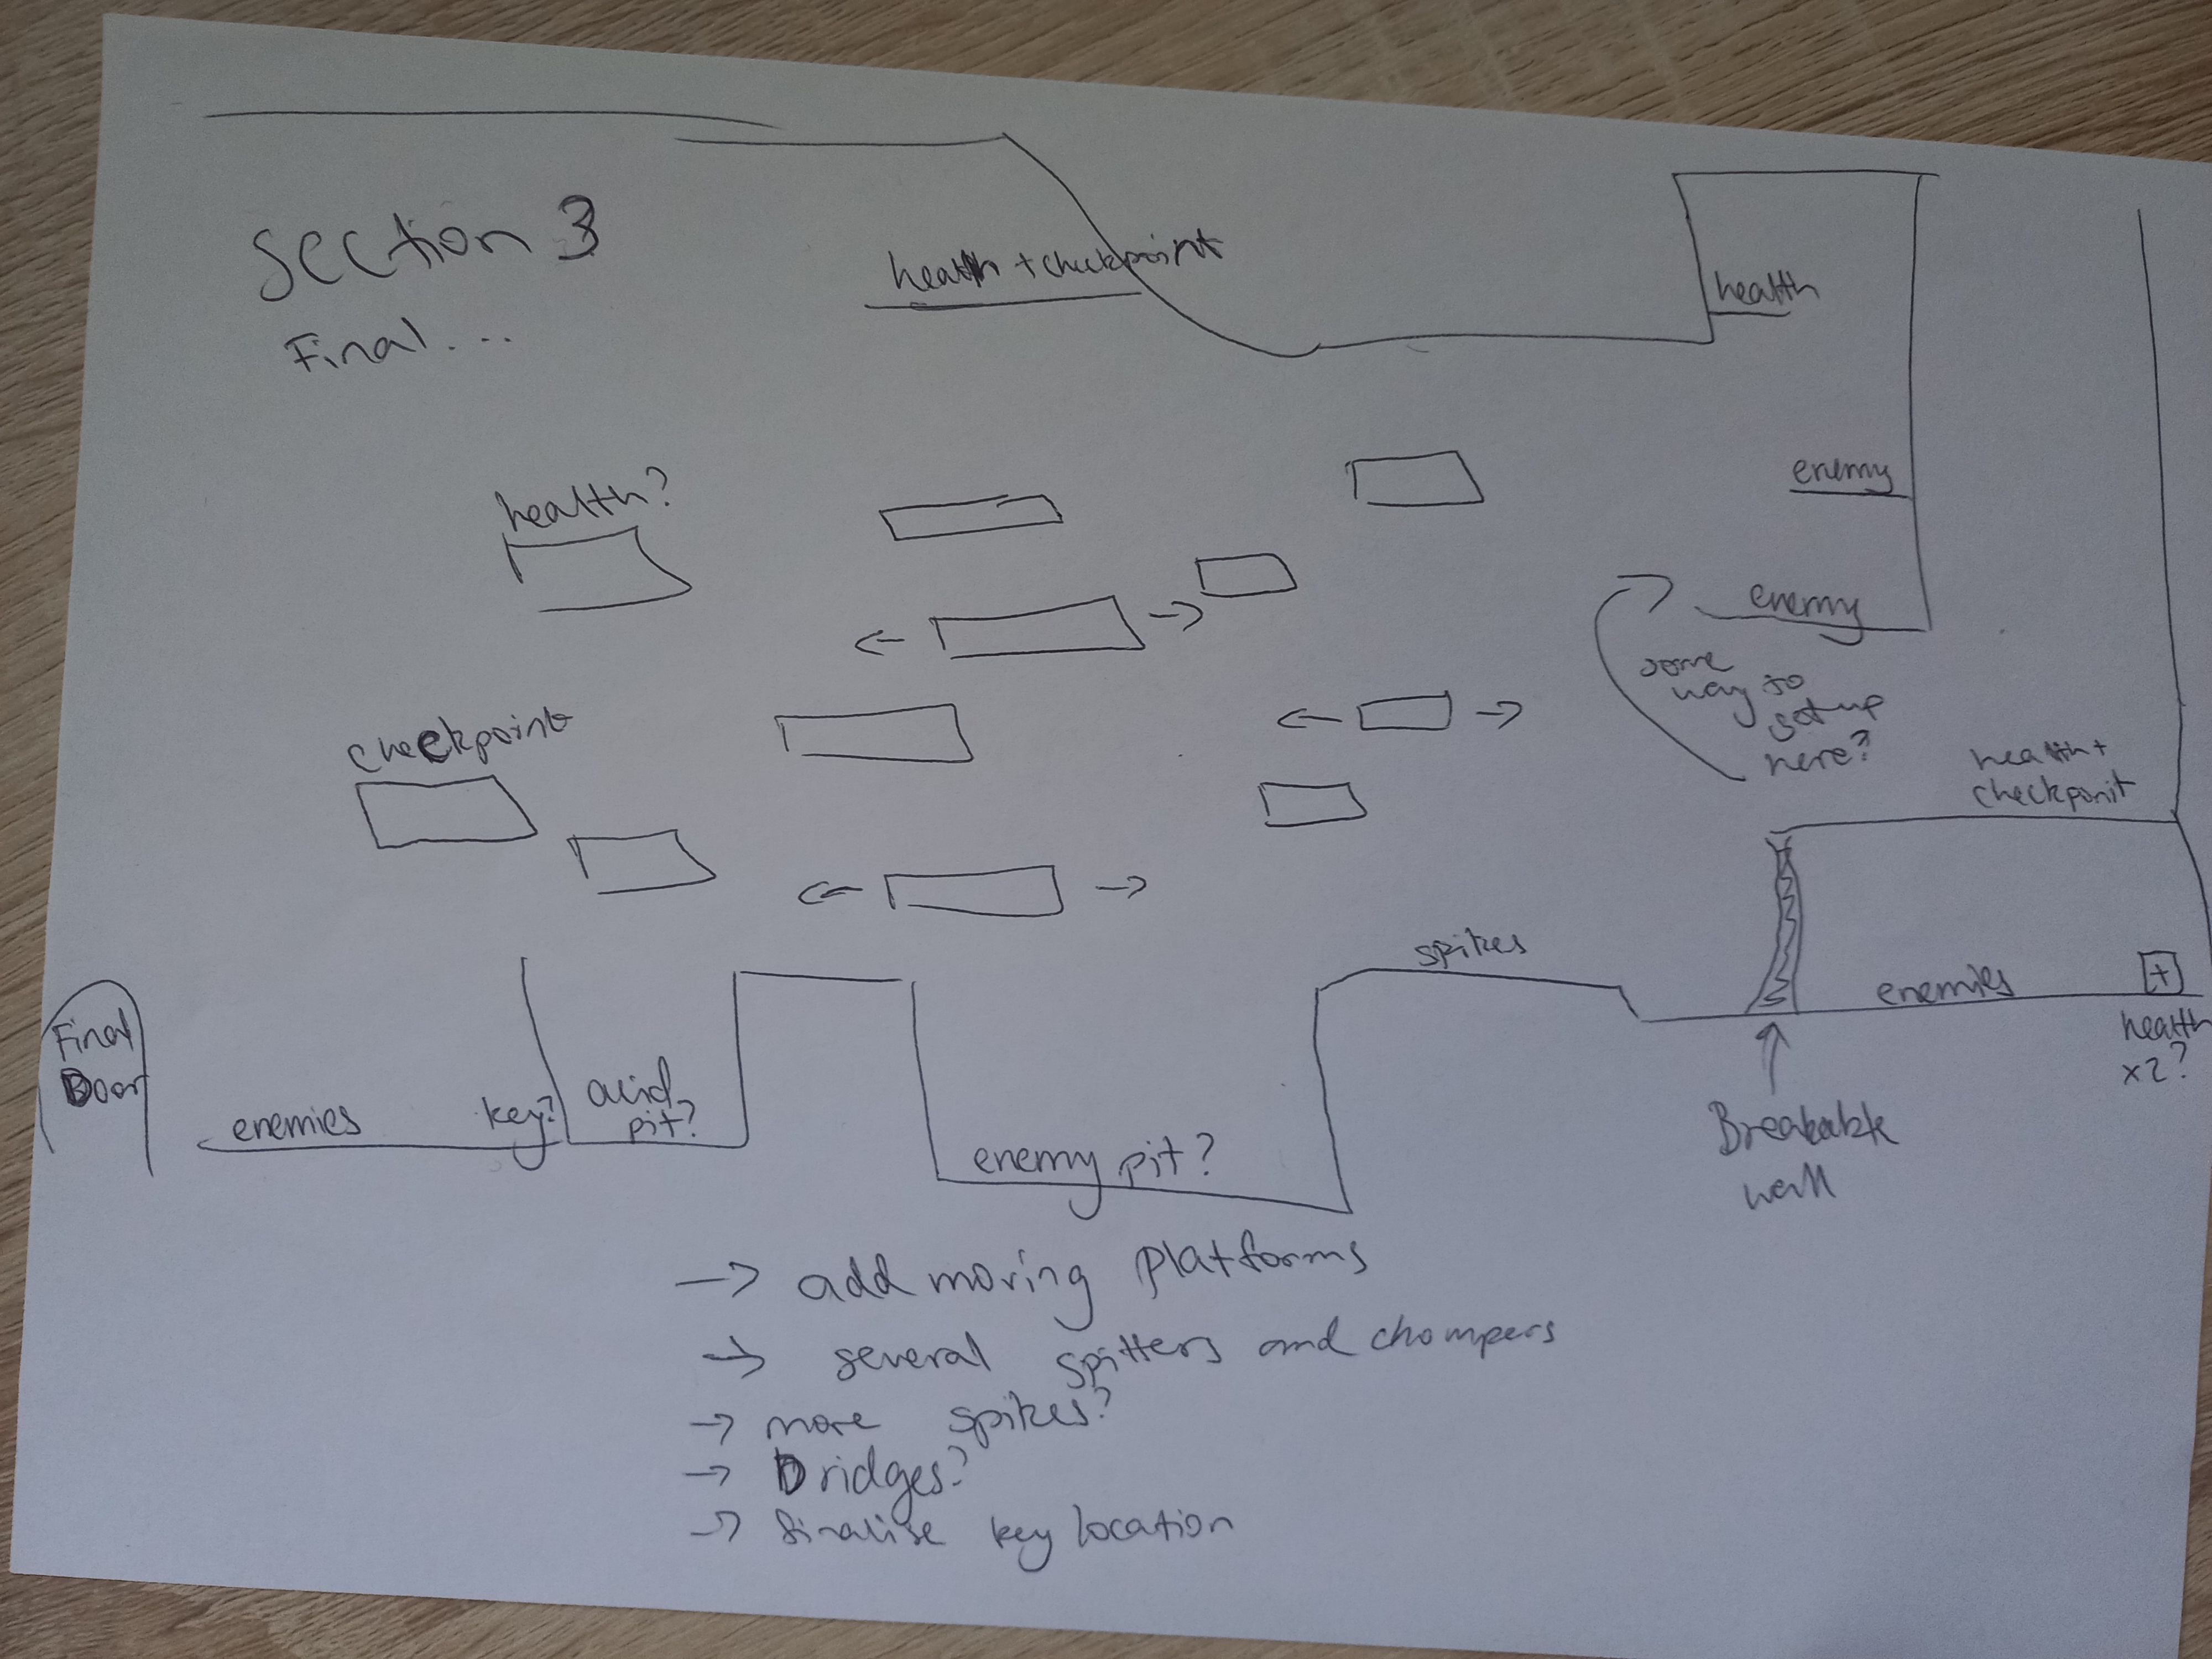 Section 3
Final...
health + checkpoint
health
health?
enemy
enemy
some
way to
get up
here?
checkpoint
health +
checkponit
spikes
enemies
+
health
x2?
Final
Door
enemies
key?
acid
pit?
enemy pit?
Breakable
wall
→ add moving platforms
→ several spitters and chompers
→ more spikes?
→ Bridges?
→ finalise key location